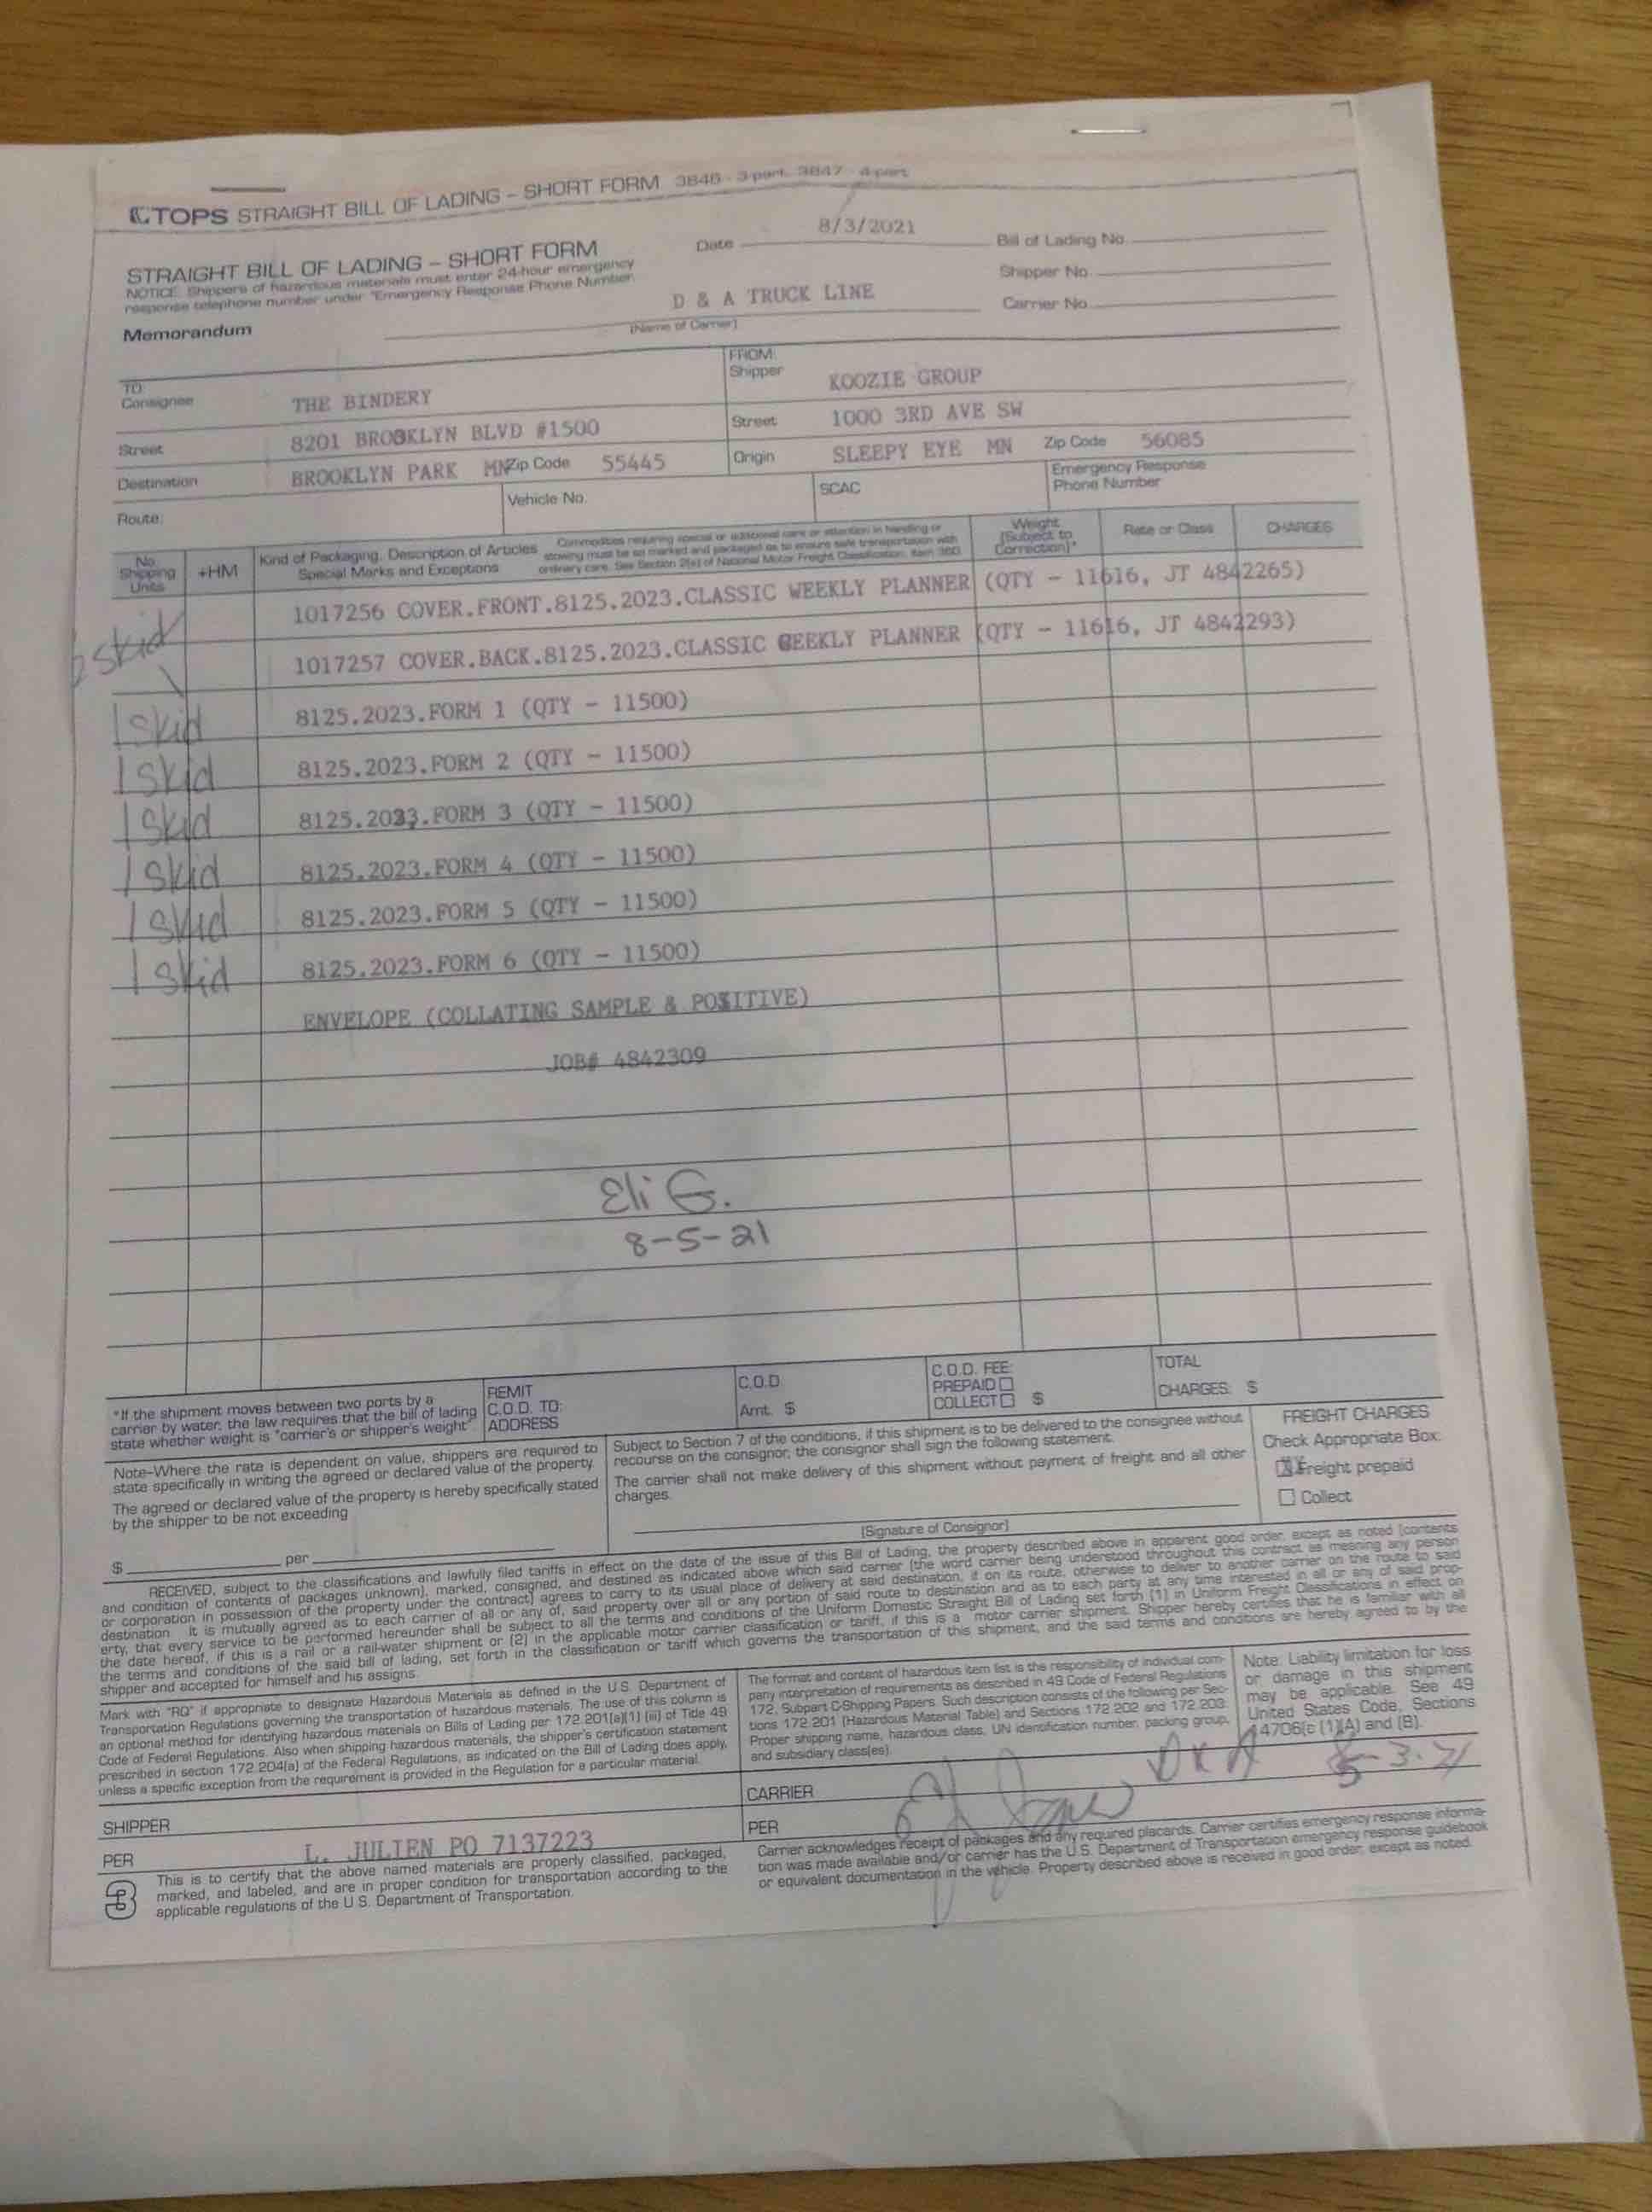 TOPS STRAIGHT BILL OF LADING – SHORT FORM 3846 - 3-part, 3847 - 4-part
STRAIGHT BILL OF LADING – SHORT FORM
NOTICE: Shippers of hazardous materials must enter 24-hour emergency
response telephone number under "Emergency Response Phone Number.
Date 8/3/2021
Bill of Lading No.
Shipper No.
Carrier No.
Memorandum
D & A TRUCK LINE
(Name of Carrier)
TO:
Consignee THE BINDERY
Street 8201 BROOKLYN BLVD #1500
Destination BROOKLYN PARK MN Zip Code 55445
FROM:
Shipper KOOZIE GROUP
Street 1000 3RD AVE SW
Origin SLEEPY EYE MN Zip Code 56085
Route:
Vehicle No.
SCAC
Emergency Response
Phone Number
No.
Shipping
Units
+HM
Kind of Packaging, Description of Articles
Special Marks and Exceptions
Commodities requiring special or additional care or attention in handling or
stowing must be so marked and packaged as to ensure safe transportation with
ordinary care. See Section 2(e) of National Motor Freight Classification, Item 360
Weight
(Subject to
Correction)*
Rate or Class
CHARGES
skid
1017256 COVER.FRONT.8125.2023.CLASSIC WEEKLY PLANNER (QTY - 11616, JT 4842265)
1017257 COVER.BACK.8125.2023.CLASSIC WEEKLY PLANNER (QTY - 11616, JT 4842293)
1 skid 8125.2023.FORM 1 (QTY - 11500)
1 skid 8125.2023.FORM 2 (QTY - 11500)
1 skid 8125.2023.FORM 3 (QTY - 11500)
1 skid 8125.2023.FORM 4 (QTY - 11500)
1 skid 8125.2023.FORM 5 (QTY - 11500)
1 skid 8125.2023.FORM 6 (QTY - 11500)
ENVELOPE (COLLATING SAMPLE & POSITIVE)
JOB# 4842309
Eli G.
8-5-21
*If the shipment moves between two ports by a
carrier by water, the law requires that the bill of lading
state whether weight is "carrier's or shipper's weight"
REMIT
C.O.D. TO:
ADDRESS
C.O.D.
Amt. $
C.O.D. FEE:
PREPAID ☐
COLLECT ☐ $
TOTAL
CHARGES: $
Note–Where the rate is dependent on value, shippers are required to
state specifically in writing the agreed or declared value of the property.
The agreed or declared value of the property is hereby specifically stated
by the shipper to be not exceeding
$ per
Subject to Section 7 of the conditions, if this shipment is to be delivered to the consignee without
recourse on the consignor, the consignor shall sign the following statement.
The carrier shall not make delivery of this shipment without payment of freight and all other
charges.
(Signature of Consignor)
FREIGHT CHARGES
Check Appropriate Box:
☒ Freight prepaid
☐ Collect
RECEIVED, subject to the classifications and lawfully filed tariffs in effect on the date of the issue of this Bill of Lading, the property described above in apparent good order, except as noted (contents
and condition of contents of packages unknown), marked, consigned, and destined as indicated above which said carrier (the word carrier being understood throughout this contract as meaning any person
or corporation in possession of the property under the contract) agrees to carry to its usual place of delivery at said destination, if on its route, otherwise to deliver to another carrier on the route to said
destination. It is mutually agreed as to each carrier of all or any of, said property over all or any portion of said route to destination and as to each party at any time interested in all or any of said prop-
erty, that every service to be performed hereunder shall be subject to all the terms and conditions of the Uniform Domestic Straight Bill of Lading set forth (1) in Uniform Freight Classifications in effect on
the date hereof, if this is a rail or a rail-water shipment or (2) in the applicable motor carrier classification or tariff, if this is a motor carrier shipment. Shipper hereby certifies that he is familiar with all
the terms and conditions of the said bill of lading, set forth in the classification or tariff which governs the transportation of this shipment, and the said terms and conditions are hereby agreed to by the
shipper and accepted for himself and his assigns.
Mark with "RQ" if appropriate to designate Hazardous Materials as defined in the U.S. Department of
Transportation Regulations governing the transportation of hazardous materials. The use of this column is
an optional method for identifying hazardous materials on Bills of Lading per 172.201(a)(1) (iii) of Title 49
Code of Federal Regulations. Also when shipping hazardous materials, the shipper's certification statement
prescribed in section 172.204(a) of the Federal Regulations, as indicated on the Bill of Lading does apply,
unless a specific exception from the requirement is provided in the Regulation for a particular material.
The format and content of hazardous item list is the responsibility of individual com-
pany interpretation of requirements as described in 49 Code of Federal Regulations
172, Subpart C-Shipping Papers. Such description consists of the following per Sec-
tions 172.201 (Hazardous Material Table) and Sections 172.202 and 172.203:
Proper shipping name, hazardous class, UN identification number, packing group,
and subsidiary class(es).
Note: Liability limitation for loss
or damage in this shipment
may be applicable. See 49
United States Code, Sections
14706(c)(1)(A) and (B).
SHIPPER
PER L. JULIEN PO 7137223
CARRIER D & A 8-3-21
PER
3
This is to certify that the above named materials are properly classified, packaged,
marked, and labeled, and are in proper condition for transportation according to the
applicable regulations of the U.S. Department of Transportation.
Carrier acknowledges receipt of packages and any required placards. Carrier certifies emergency response informa-
tion was made available and/or carrier has the U.S. Department of Transportation emergency response guidebook
or equivalent documentation in the vehicle. Property described above is received in good order, except as noted.